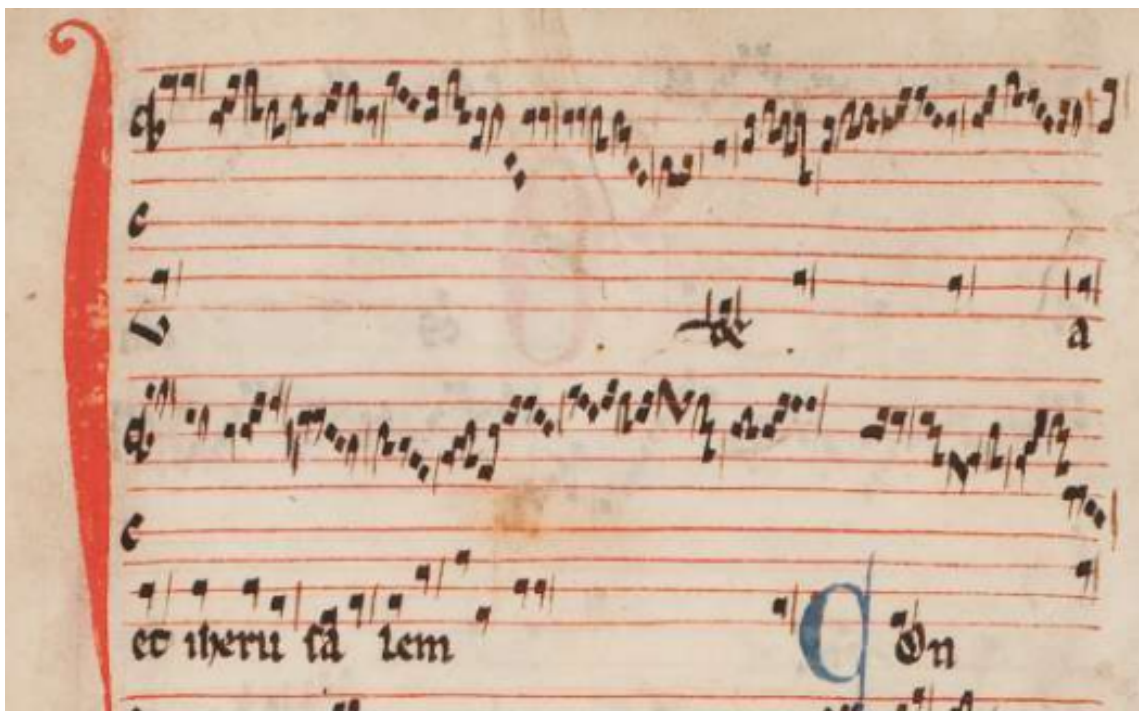 IU de a
et iheru sa lem COn